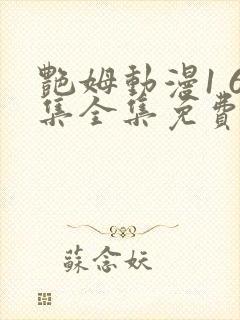 艷姆動漫1 6
集全集免費
蘇念妖